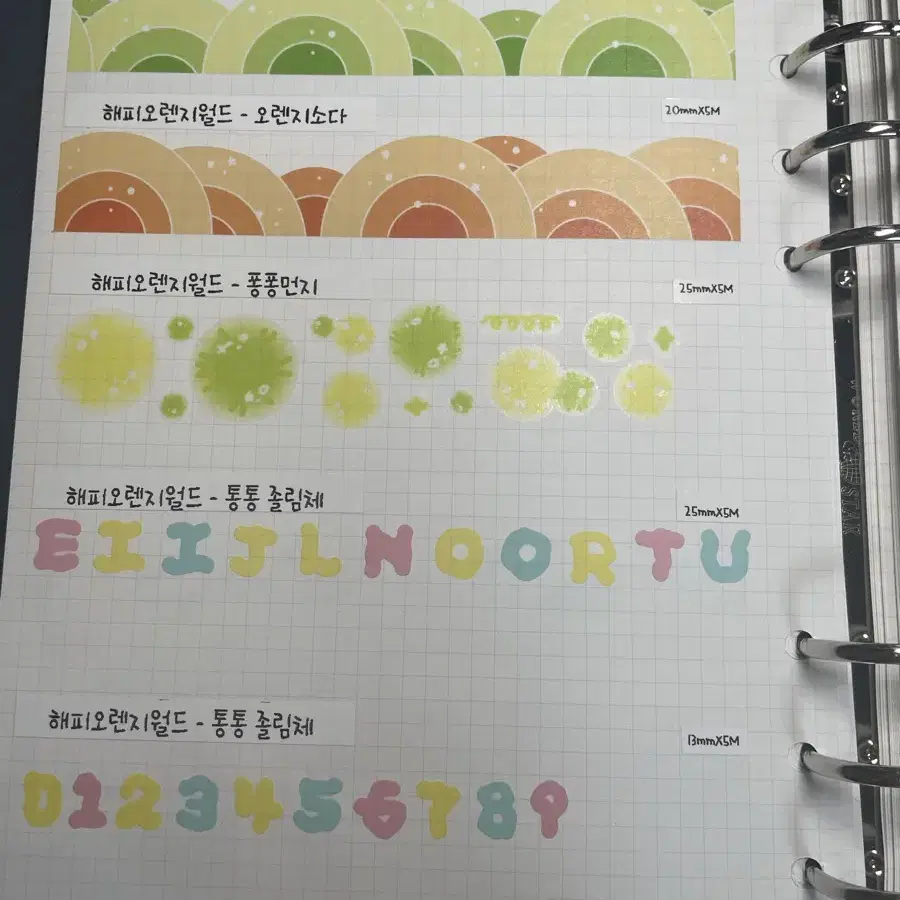 해피오렌지월드 - 오렌지소다
20mmX5M
해피오렌지월드 - 퐁퐁먼지
25mmX5M
해피오렌지월드 - 통통 졸림체
25mmX5M
E I I J L N O O R T U
해피오렌지월드 - 통통 졸림체
13mmX5M
0 1 2 3 4 5 6 7 8 9